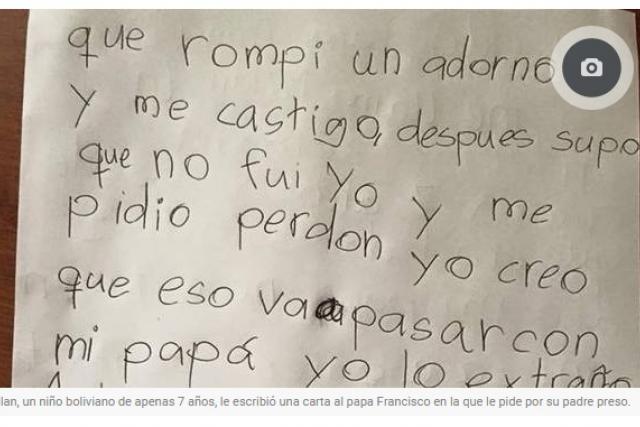 que rompi un adorno
y me castigo, despues supo
que no fui yo y me
pidio perdon yo creo
que eso va a pasar con
mi papá yo lo extraño
lan, un niño boliviano de apenas 7 años, le escribió una carta al papa Francisco en la que le pide por su padre preso.